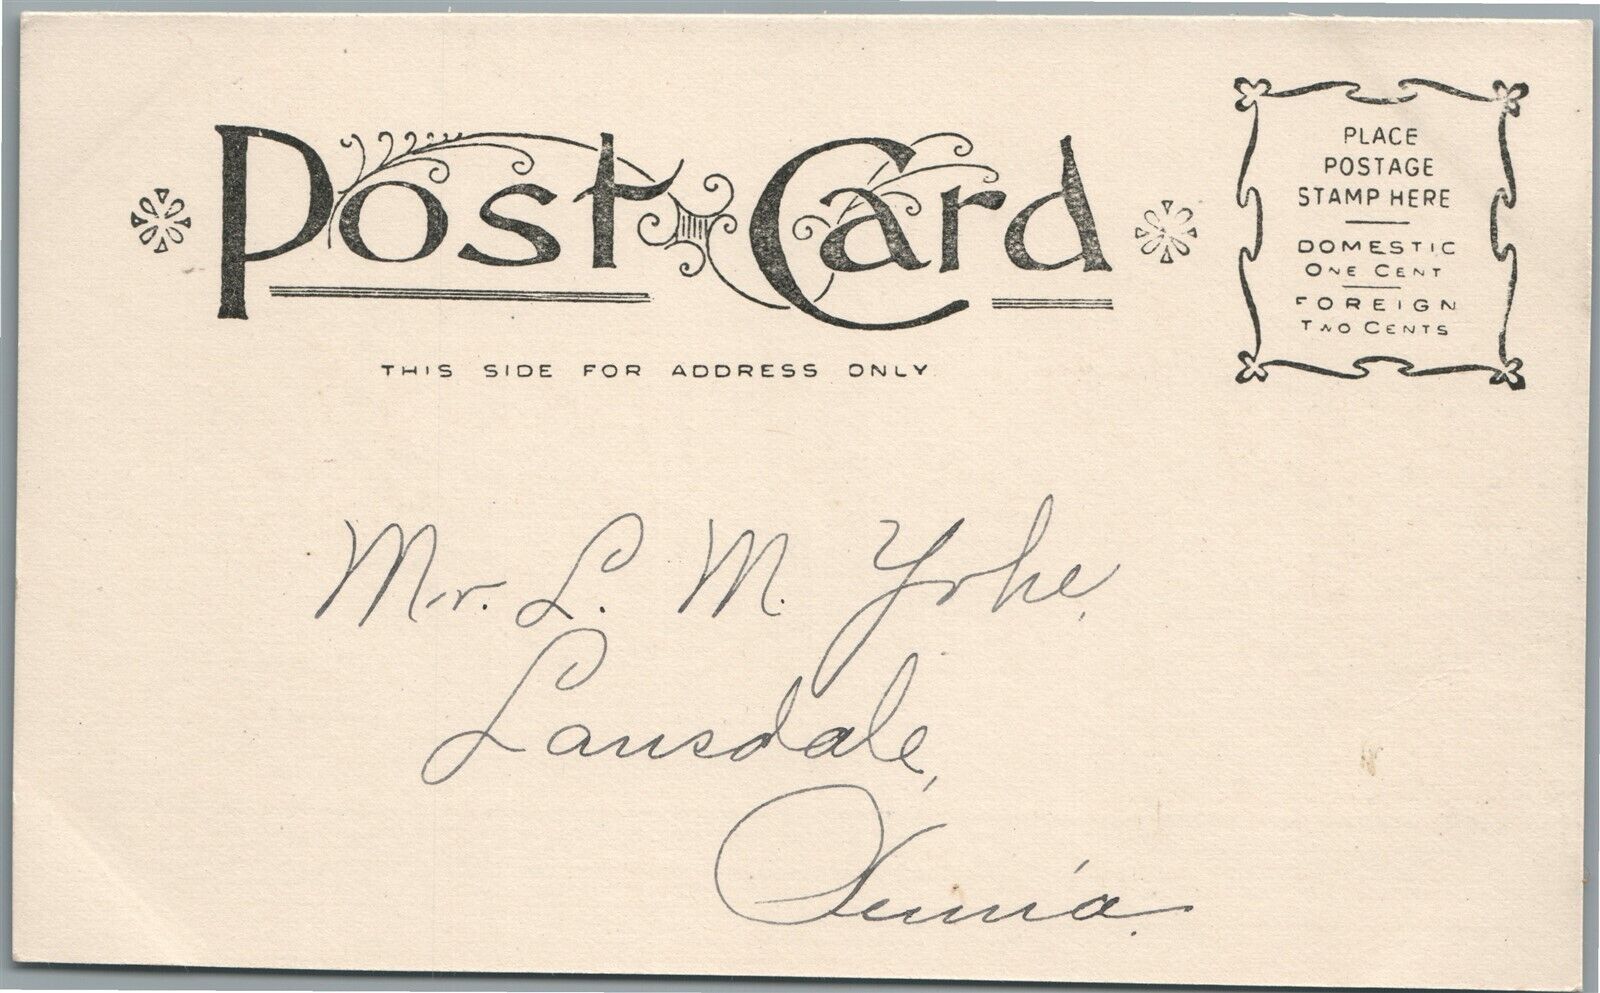 Post Card
PLACE
POSTAGE
STAMP HERE
DOMESTIC
ONE CENT
FOREIGN
TWO CENTS
THIS SIDE FOR ADDRESS ONLY
Mr. L. M. Yrhe,
Lansdale,
Penn'a.